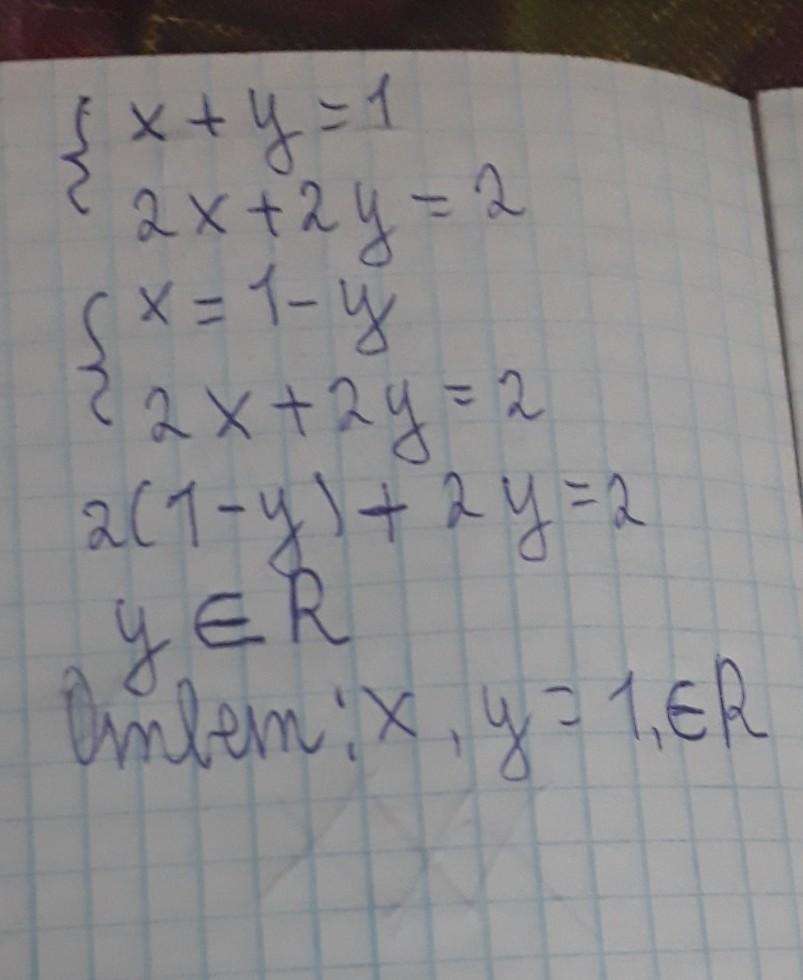 { x + y = 1
2x + 2y = 2
{ x = 1 - y
2x + 2y = 2
2(1 - y) + 2y = 2
y ∈ R
Ответ: x, y = 1, ∈ R